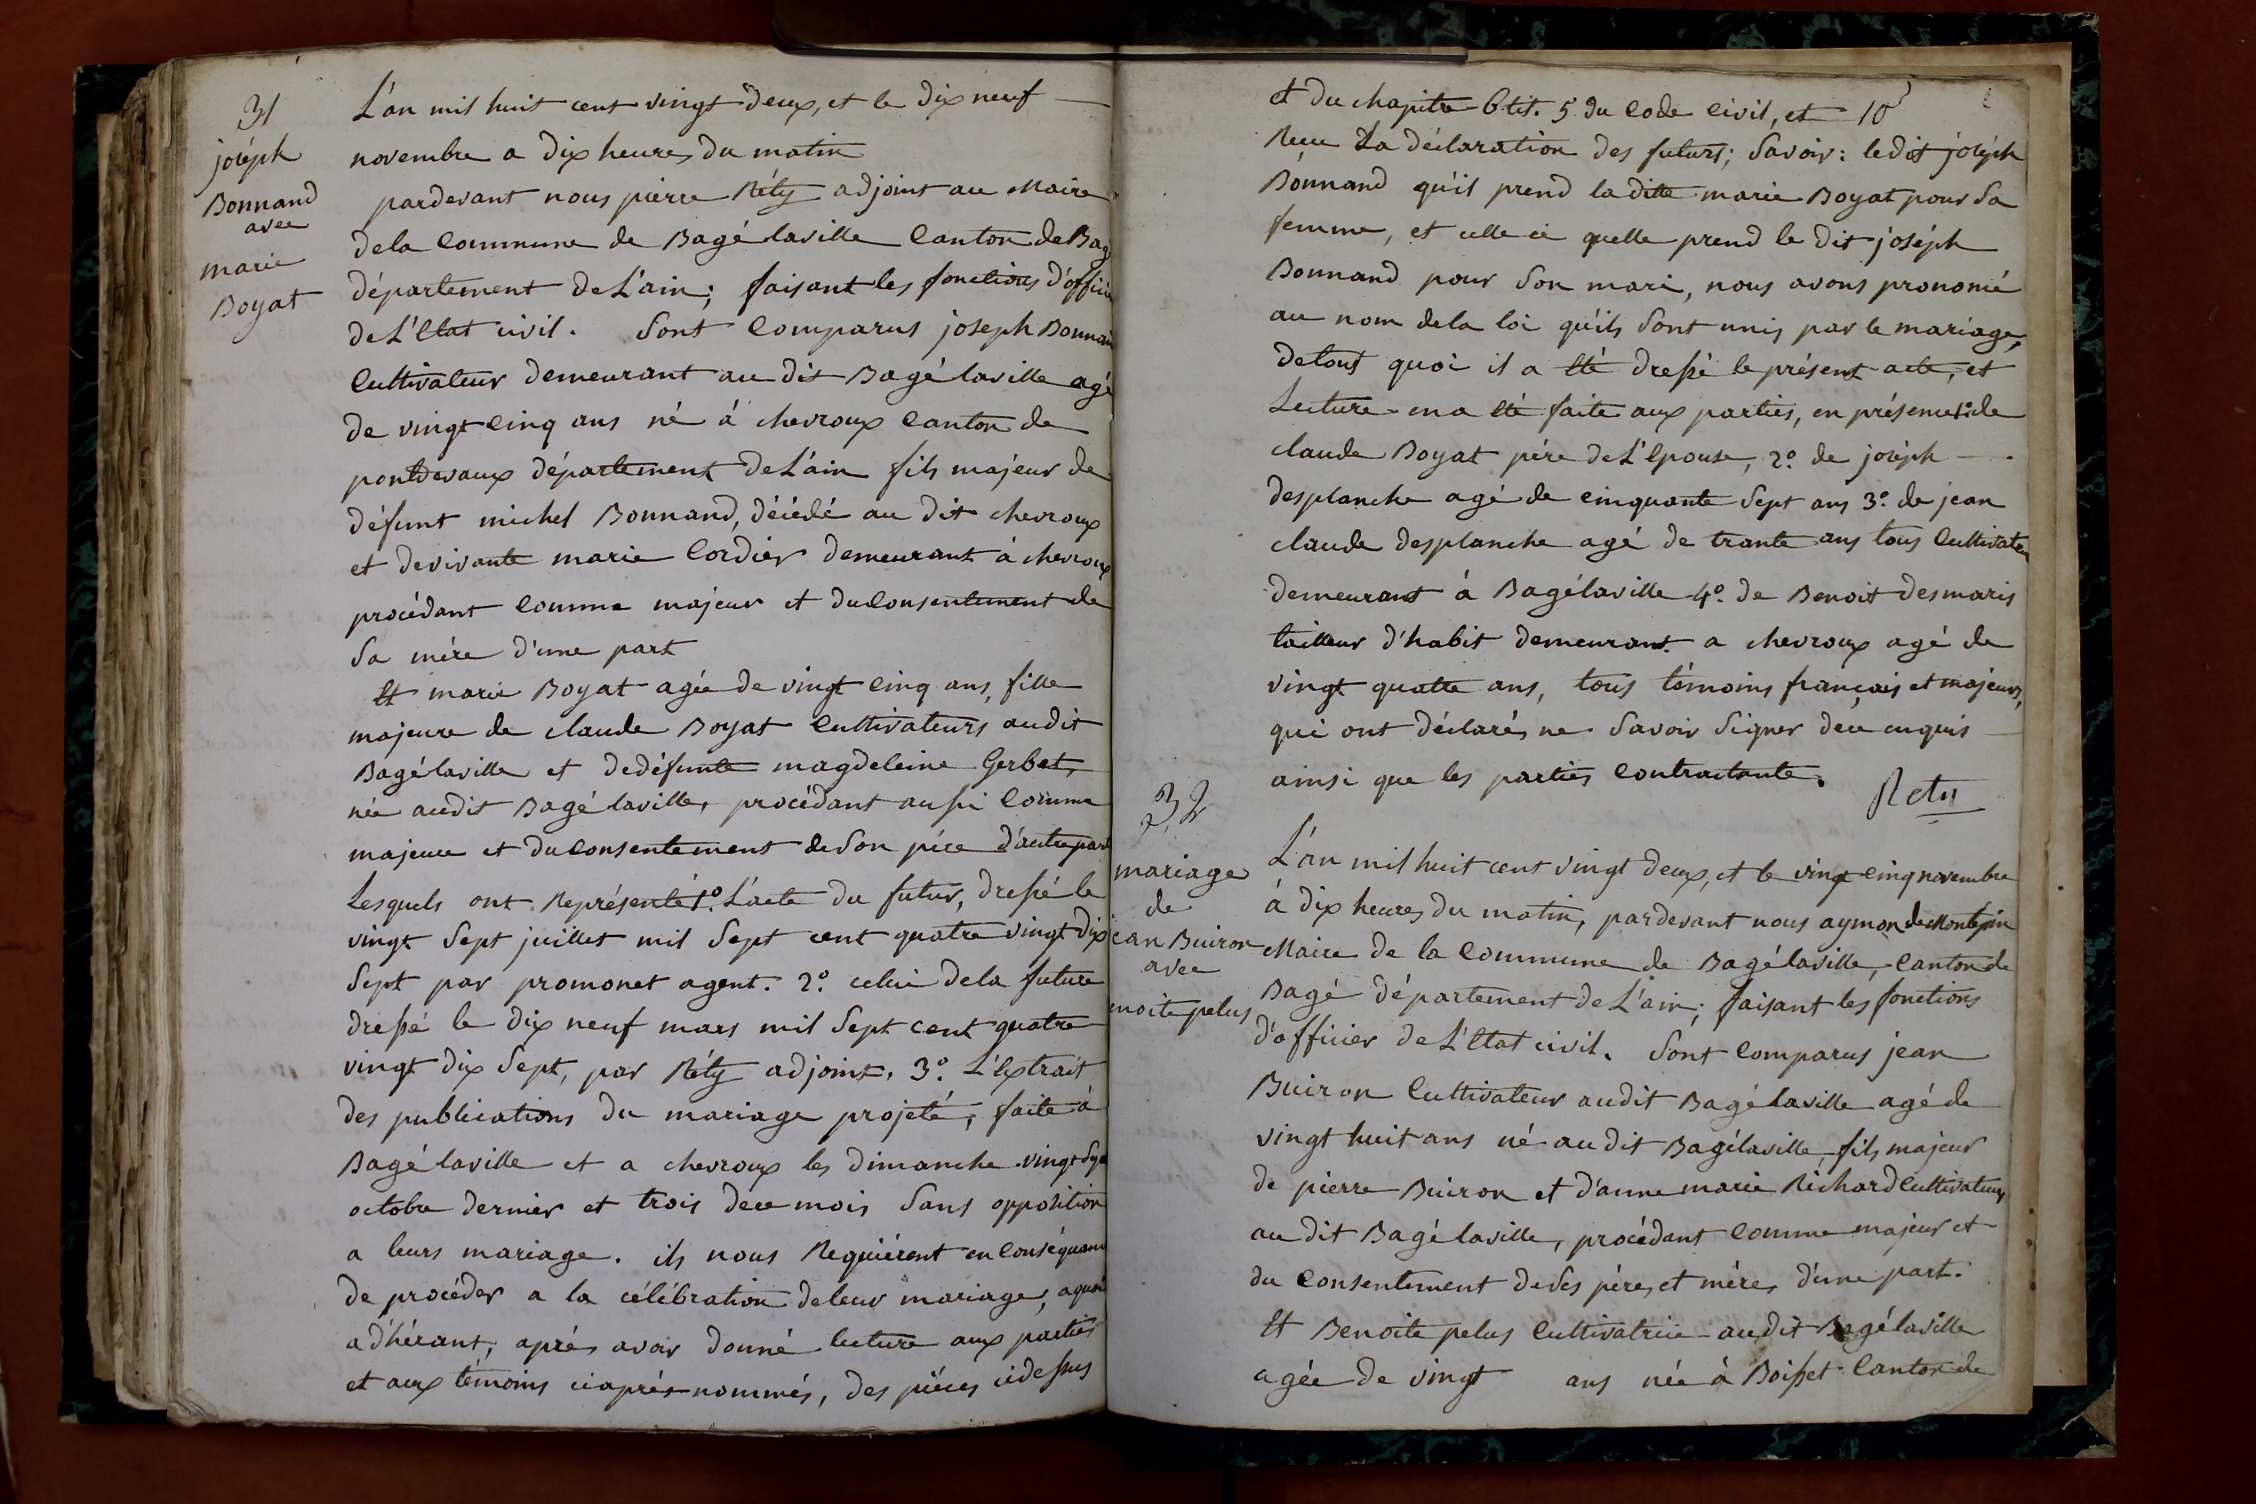 31
joséph
Bonnand
avec
marie
Boyat
L'an mil huit cent vingt deux, et le dix neuf
novembre a dix heures du matin
pardevant nous pierre Réty adjoint au Maire
dela Commune de Bagé laville Canton de Bag
département de L'ain; faisant les fonctions d'offici
de L'Etat civil. Sont Comparus joseph Bonnan
Cultivateur demeurant au dit Bagé laville agé
de vingt cinq ans né á chevroux Canton de
pontdevaux département de L'ain fils majeur de
défunt michel Bonnand, décédé au dit chevroux
et devivante marie Cordier demeurant á chevroux
procédant Comme majeur et du Consentement de
Sa mére d'une part
Et marie Boyat agée de vingt Cinq ans, fille
majeure de claude Boyat Cultivateurs audit
Bagélaville et dedéfunte magdeleine Gerbet,
née audit Bagé laville, procédant aussi Comme
majeure et du Consentement de Son pére d'autre part
Lesquels ont Représenté 1º. L'acte du futur, dressé le
vingt Sept juillet mil Sept cent quatre vingt dix
Sept par promonet agent. 2º. celui dela future
dressé le dix neuf mars mil Sept cent quatre
vingt dix Sept, par Réty adjoint, 3º. L'Extrait
des publications du mariage projeté, faite á
Bagé laville et a chevroux les dimanche vingt Sept
octobre dernier et trois de ce mois Sans opposition
a leurs mariage. ils nous Requiérent en Conséquanc
de procéder a la célébration deleur mariage, aquoi
adhérant, aprés avoir donné lecture aux parties
et aux témoins ciaprés nommés, des piéces cidessus
et du chapitre 6 tit. 5 du Code Civil, et 10
Recu La déclaration des futurs; Savoir: ledit joséph
Bonnand qu'il prend la ditte marie Boyat pour Sa
femme, et celle ci quelle prend le dit joséph
Bonnand pour Son mari, nous avons prononcé
au nom dela loi qu'ils Sont unis par le mariage,
detout quoi il a Eté dressé le présent acte, et
Lecture en a Eté faite aux parties, en présence 1º de
claude Boyat pére de L'Epouse, 2º. de joséph
desplanche agé de cinquante Sept ans 3º. de jean
claude desplanche agé de trante ans tous Cultivateu
demeurant á Bagélaville 4º. de Benoit desmaris
tailleur d'habit demeurant a chevroux agé de
vingt quatre ans, tous témoins français et majeurs,
qui ont déclarés ne Savoir Signer de ce enquis
ainsi que les parties Contractante.
Rety
32
mariage
de
jean Buiron
avec
enoite pelus
L'an mil huit cent vingt deux, et le vingt cinq novembre
á dix heures du matin, pardevant nous aymon de Montépin
Maire de la Commune de Bagélaville, Canton de
Bagé département de L'ain; faisant les fonctions
d'officier de L'Etat civil. Sont Comparus jean
Buiron Cultivateur audit Bagé laville agé de
vingt huit ans né au dit Bagélaville, fils majeur
de pierre Buiron et d'anne marie Richard Cultivateurs
au dit Bagé laville, procédant Comme majeur et
du Consentement de Ses pére, et mére, d'une part.
Et Benoite pelus Cultivatrice audit Bagélaville
agée de vingt ans née á Boisset Canton de